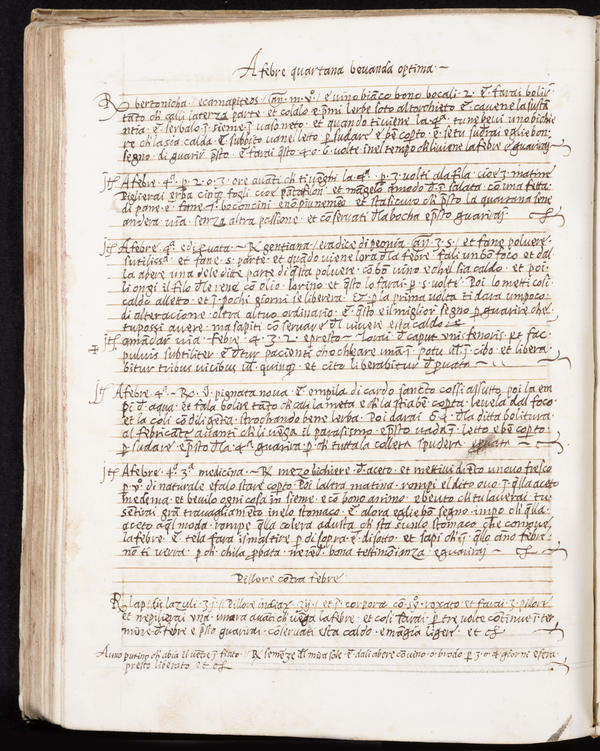 A febre quartana bevanda optima
℞ bertonicha / ecamapiteos / an. m. v. / e vino bianco bono bocali · 2 · e farai bolir
tato ch cali la terza parte et colalo e pmi lerbe soto al torchieto e cavene la susta
ntia e serbalo i sieme i vaso neto · et quando ti viene la 4ª tu ne bevi uno bichie
re ch la sia calda e subbito vane letto p sudare e be copto e se tu suerai eglie bon
segno di guarir psto e farai qsto 4 · o 6 · volte inel tempo ch li viene la febre e guarirai
Itē A febre · 4ª · p · 2 · o · 3 · ore avati ch ti venghi la 4ª · p · 3 · volti ala fila cioe 3 matine
Piglierai erba cinqe fogli cioe pentafilon et mangelo a modo d i salata con una fetta
di pane e fane 3 bocconcini eno piu ne meno et sta sicuro ch psto la quartana sene
andera via senza altra passione et conservati dla bocha epsto guarirai
Itē A febre 4ª ed p vata ℞ gentiana / e radice di peonia an 3 · s / et fane polvere
sutilissª et fane · s · parte et quado viene lora dla febre fali uno foco et dal
la apere una dele dite parte di qsta polvere con bo vino e chel sia caldo et poi
li ongi il filo dle rene co olio lorino et qsto lo farai p · s · volte Poi lo metti cosi
caldo alletto et i pochi giorni se liberera Et p la prima volta ti dara un poco
di alteracione oltra al tuo ordinario e qsto e il miglior segno p guarire che
tu possi avere ma sapiti conservare dl vivere e sta caldo
Itē a mandar via febre 4 · 3 · 2 · e presto torai d caput unis fenoris et fac
pulvis subtiliter e dtur pacienti cho cheare una i potu vl i cibo et libera
bitur tribus vicibus vl quinqe et cito liberabitur
Itē A febre 4ª ℞ d pignata nova e empila di cardo sancto cossi assutto poi la em
pi d aqua et fala bolire tato ch cali la meta e ch la stia be copta levela dal foco
et la coli co diligeza strochando bene lerba Poi darai 6 3 dla dita bolitura
al febricate avanti ch li vega il parasismo epsto vada i letto e be copto
p sudare epsto dla 4ª guarira p ch tutta la collera spudera
Itē A febre 4ª 3ª medicina ℞ mezo bichiere d aceto et metivi dreto un ovo fresco
p un di naturale e falo stare copto Poi laltra matina rompi el dito ovo i qlla aceto
medema et bevilo ogni cosa in sieme e co bono animo e bevuto ch tu laverai tu
setirai gra travagliameto inelo stomaco E alora eglie bo segno impo ch qlla
aceto a ql moda rompe qlla colera adusta ch sta su nlo stomaco che comove
la febre E te la fara ismaltire p di sopra e di soto et sapi ch i qllo ano febre
no ti verra p ch ch la pbata ne rede bona testimonianza e guarirai
Pillore cotra febre
℞ lapidis lazuli 3 i / Pillore indiar 3 ii / et i corpora con so roxato et farai 3 pillore
et ne pilierai una unora avati ch vega la febre et cosi farai p tre volte cotinue i ter
mine d febre e psto guarirai coservati e sta caldo e magia ligieri et cȝ
A uno putino ch abia il vecie i fiato ℞ semeze d mirasole e dali a bere co vino o brodo p 3 o 4 giorne e sera
presto liberato et cȝ